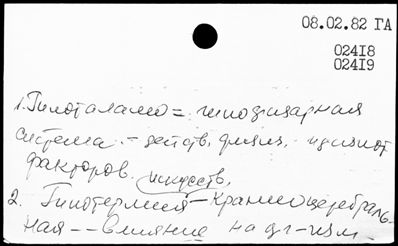 08.02.82 ГА
02418
02419
1. Гипоталамо = гипофизарная
система - действ. физич.
факторов. искусств.
2. Гипотермия - Краниоцеребраль-
ная -- влияние на орг-изм -